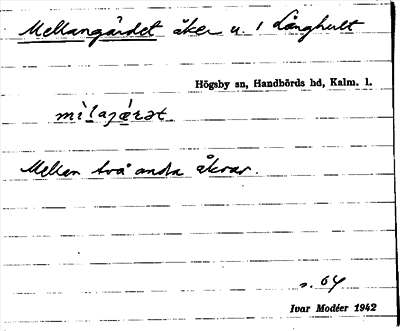 Mellangärdet åker u. 1 Långhult
Högsby sn, Handbörds hd, Kalm. l.
Mellan två andra åkrar.
s. 64
Ivar Modéer 1942